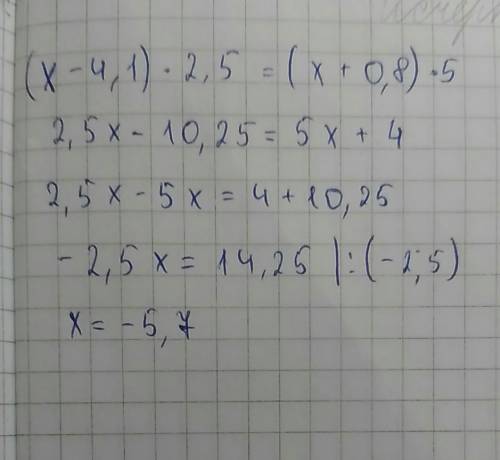 (x - 4,1) · 2,5 = (x + 0,8) · 5
2,5x - 10,25 = 5x + 4
2,5x - 5x = 4 + 10,25
- 2,5x = 14,25 |:(-2,5)
x = -5,7